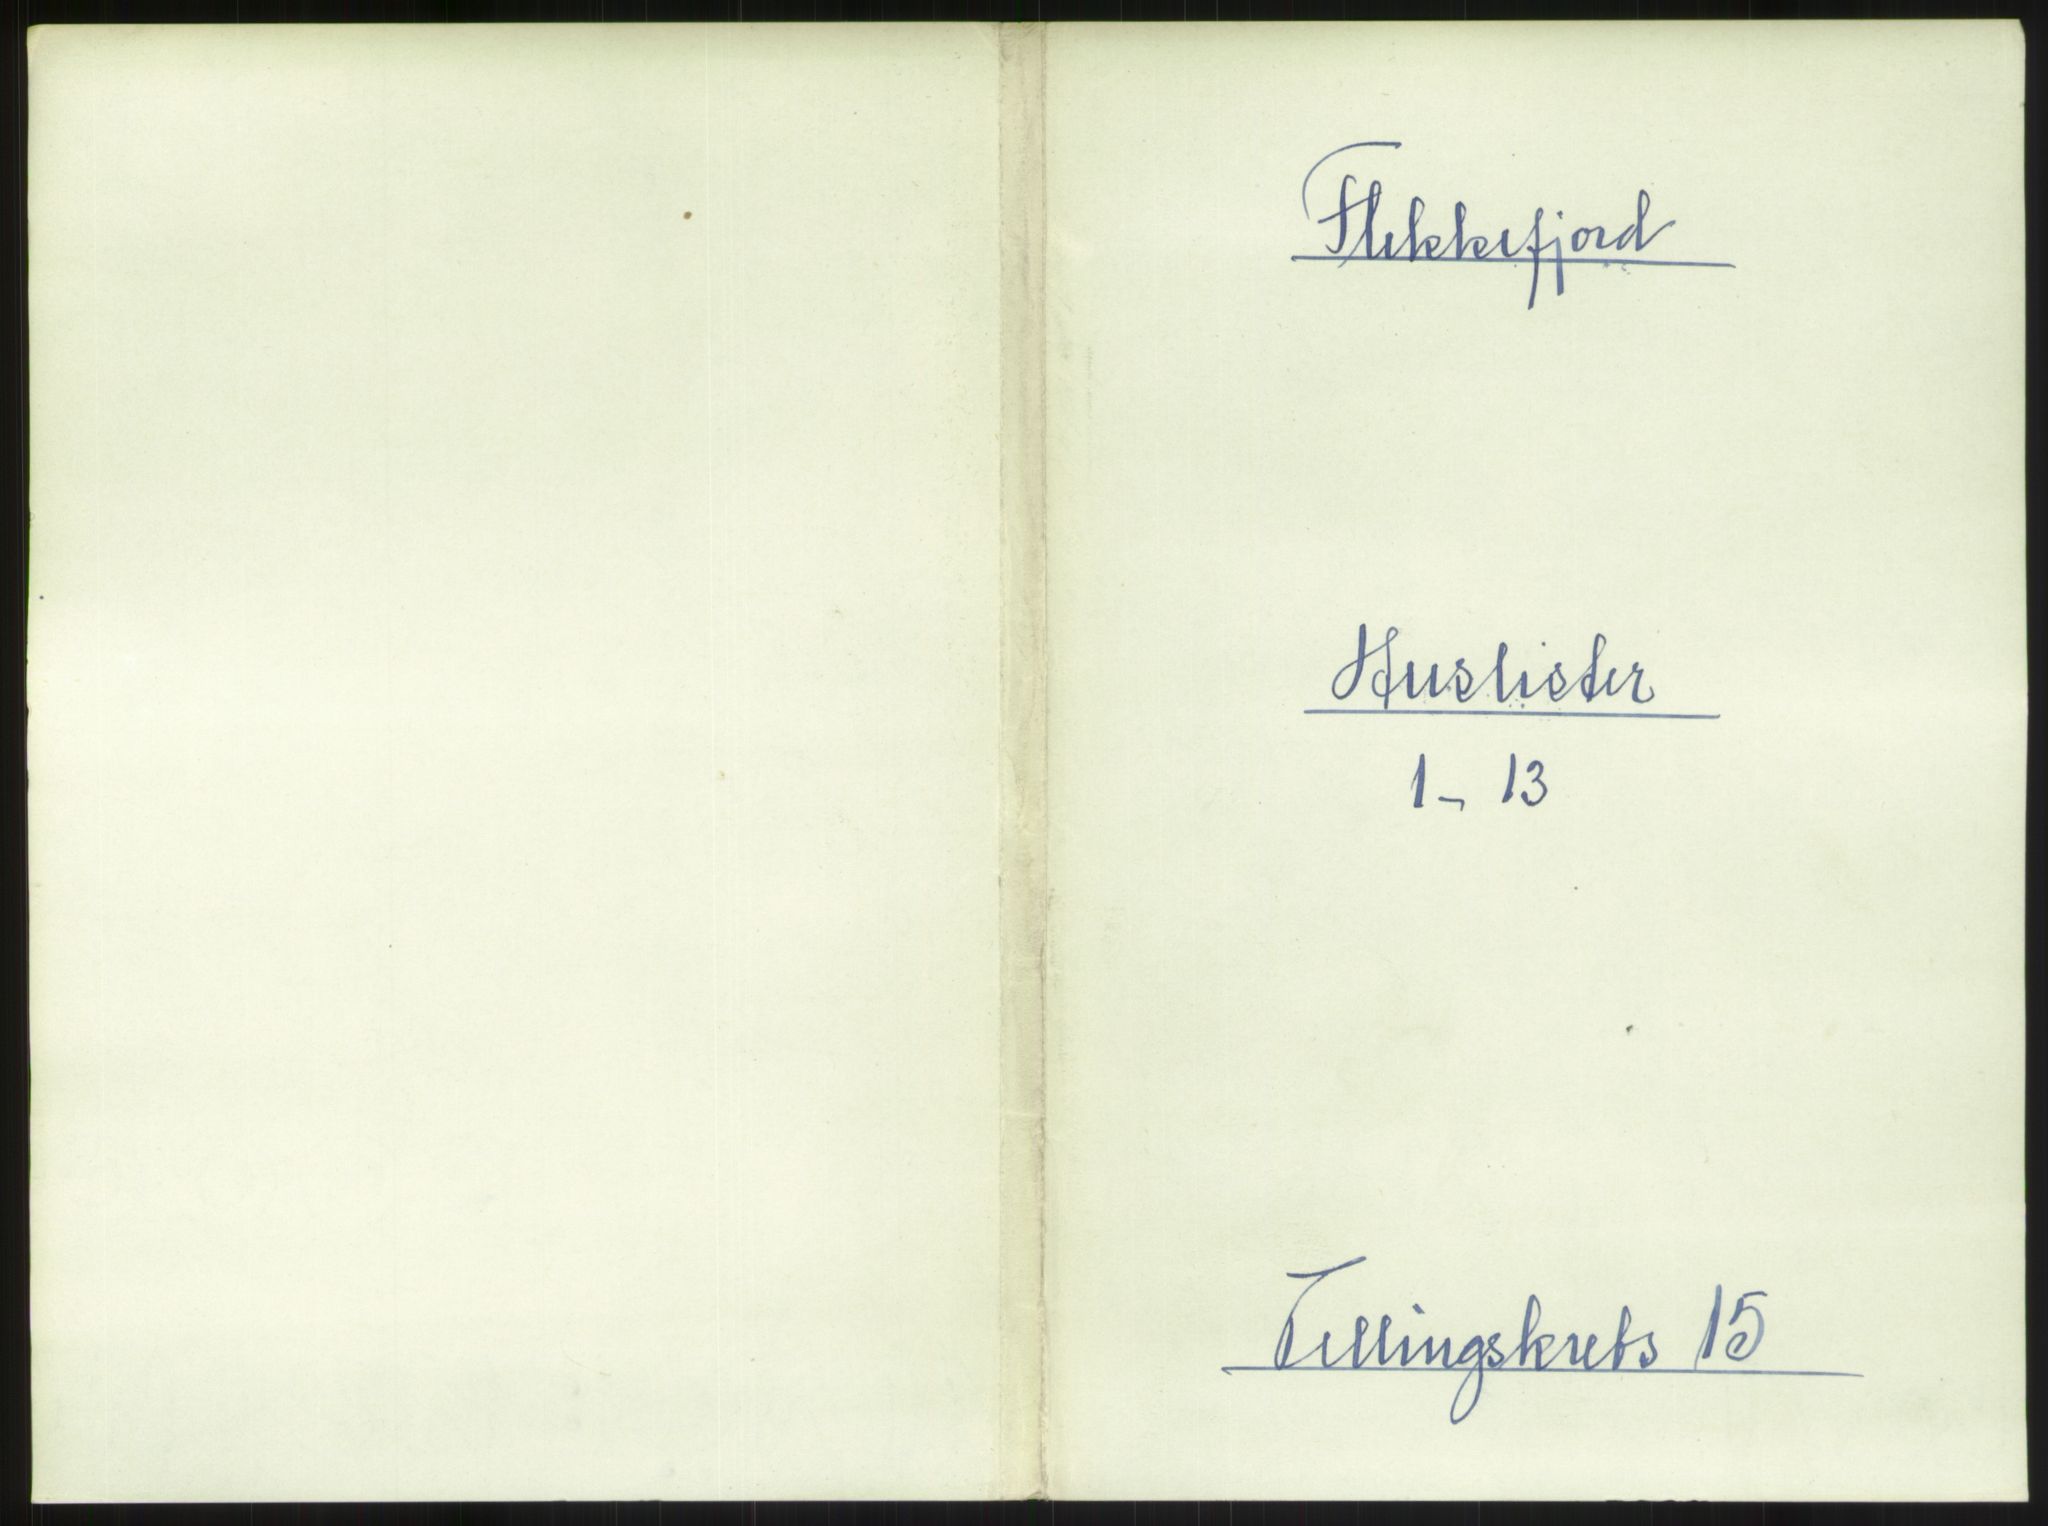 Flekkefjord
Huslister
1 - 13
Tellingskrets 15